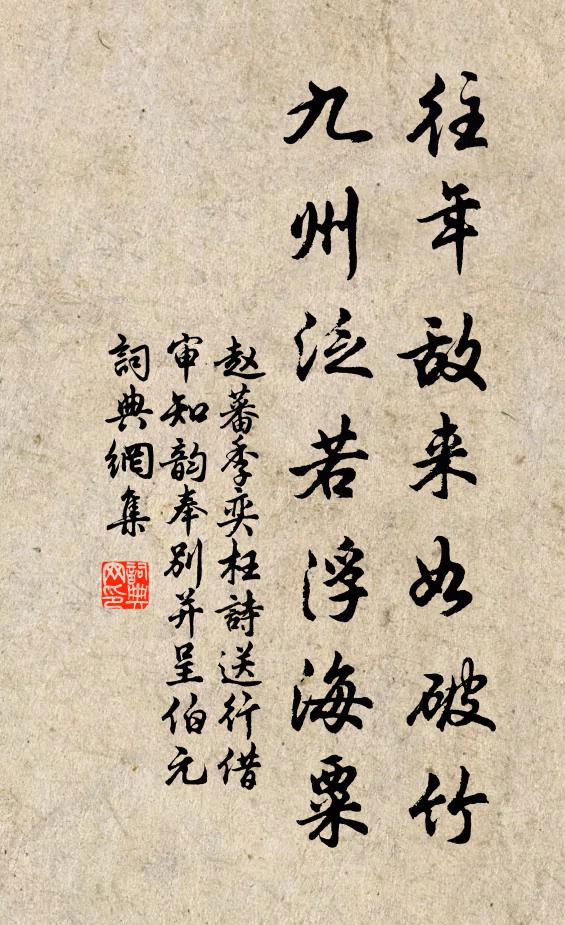 往年敌来如破竹
九州泛若浮海粟
赵蕃季奕枉詩送行借
审知韵奉别并呈伯元
詞典網集
詞典网印